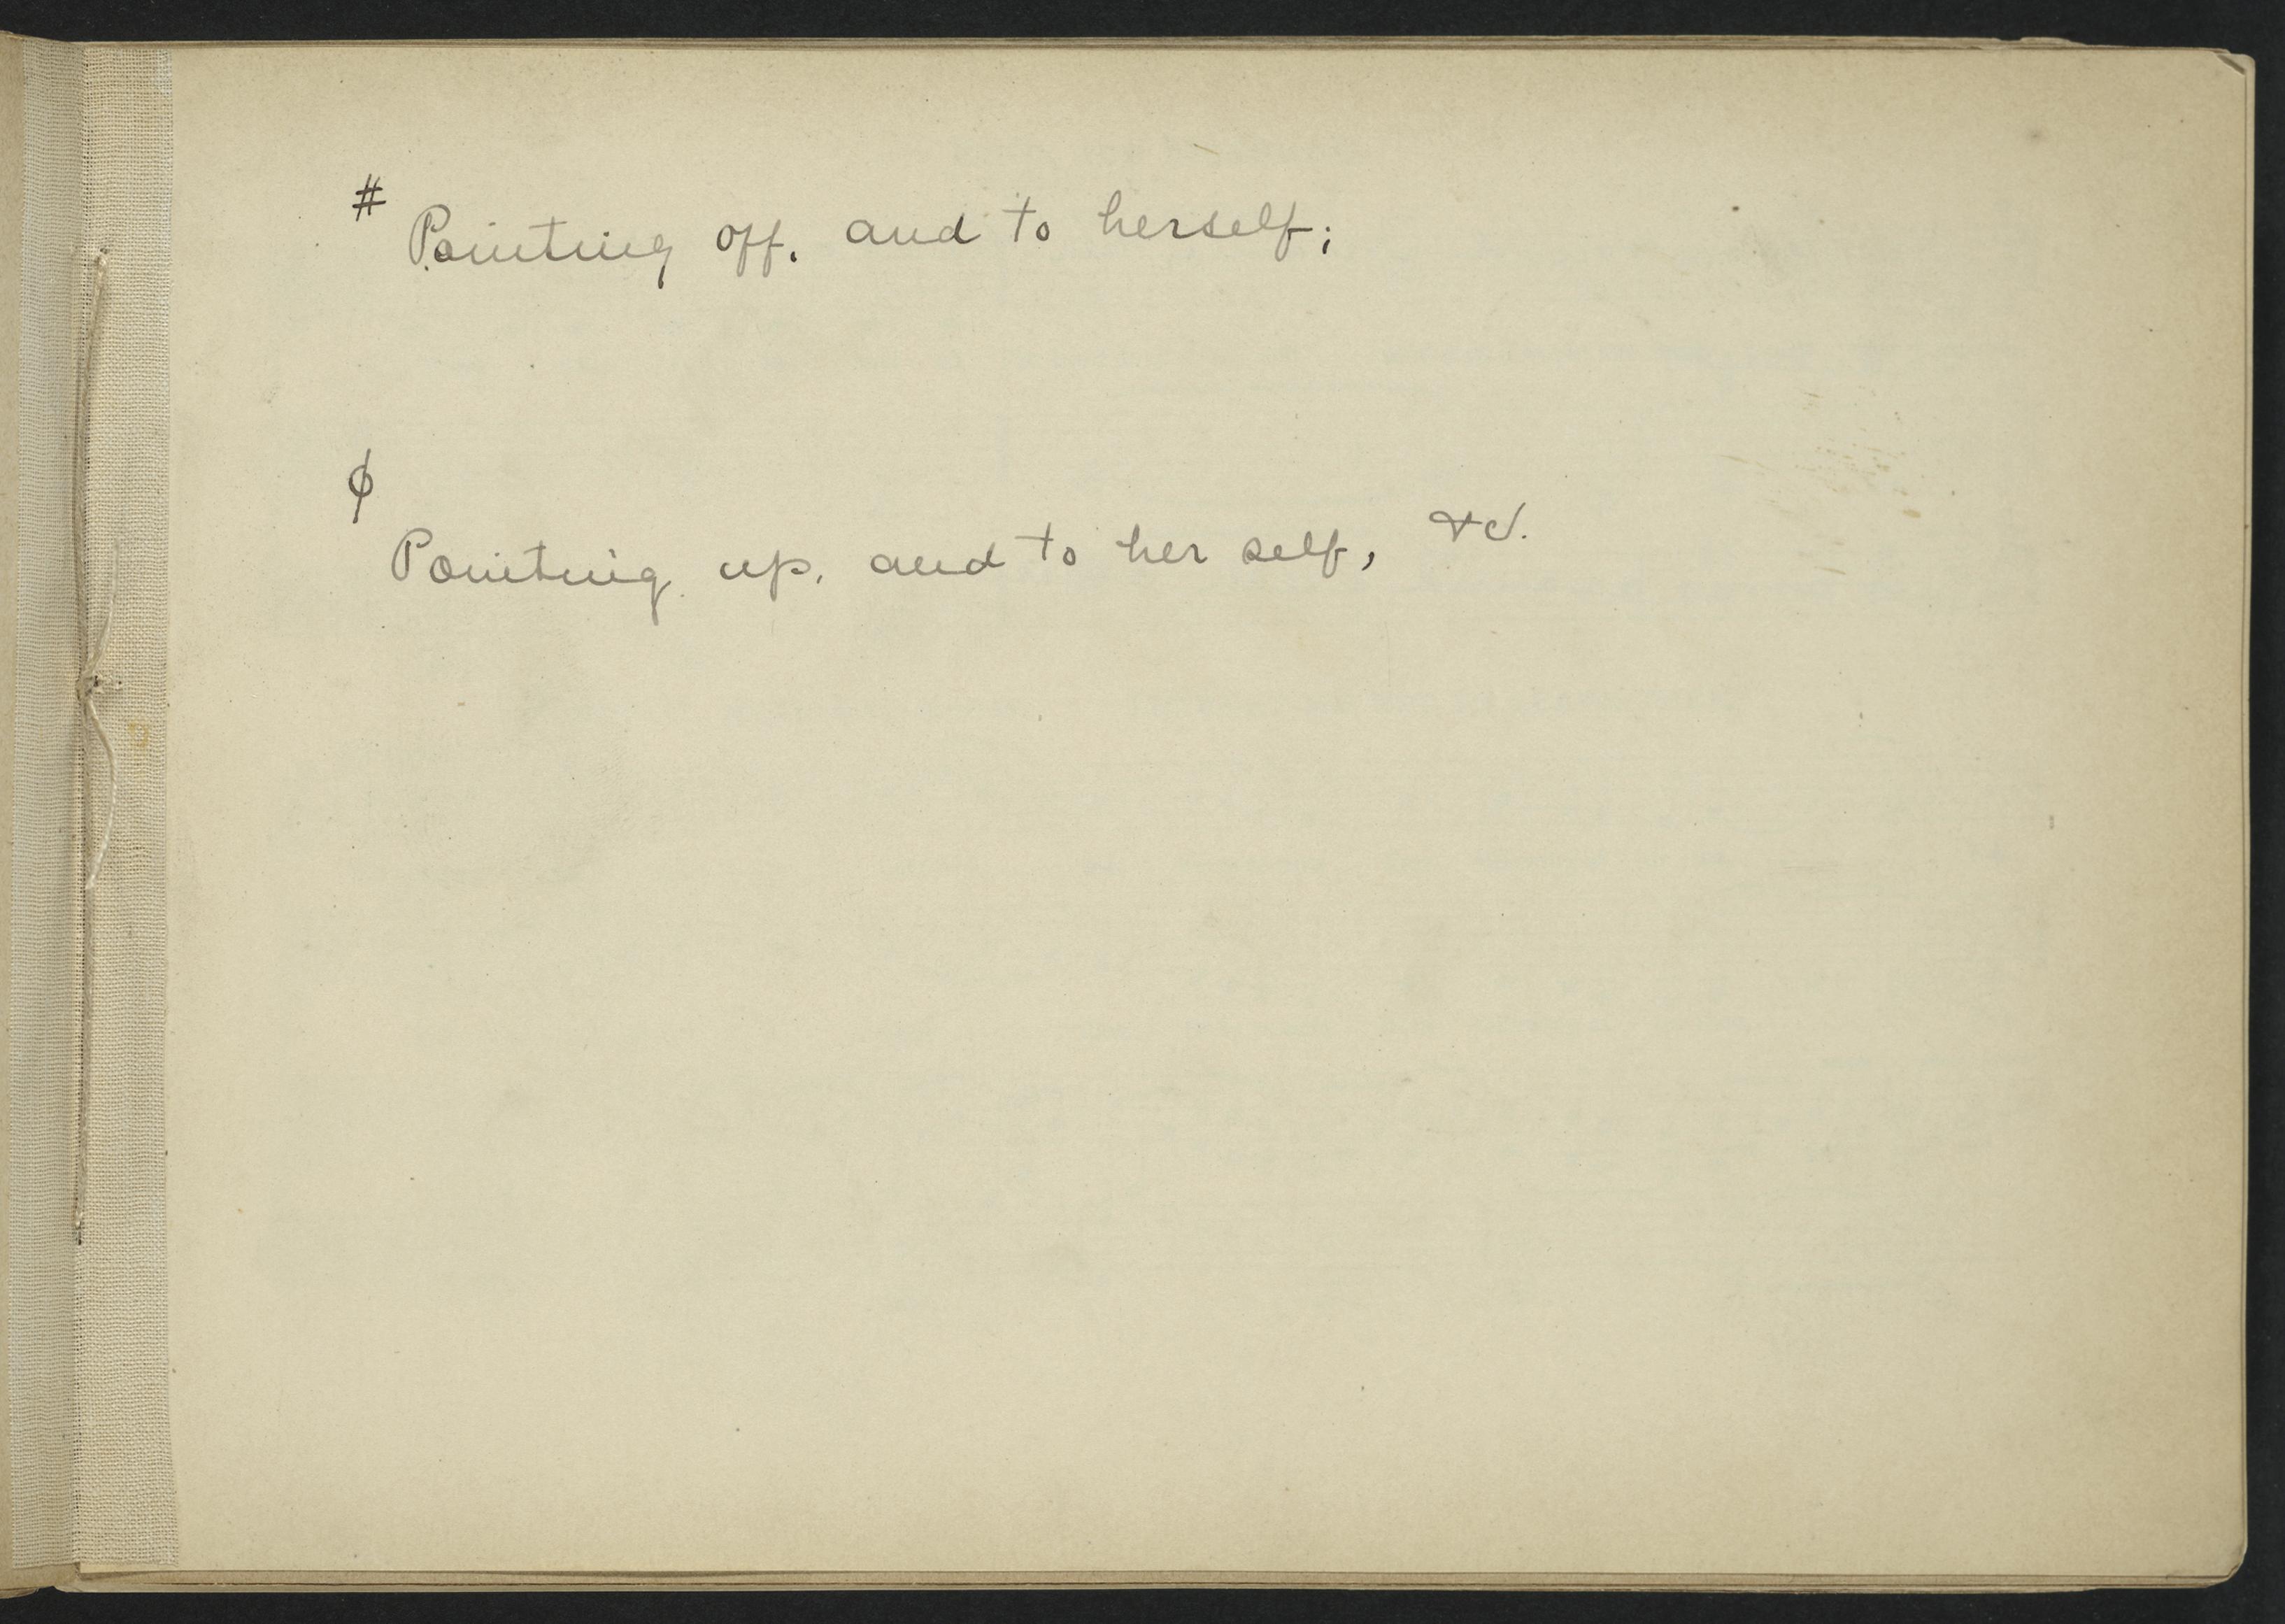 # Pointing off. and to herself;
ϕ
Pointing up, and to her self, &c.